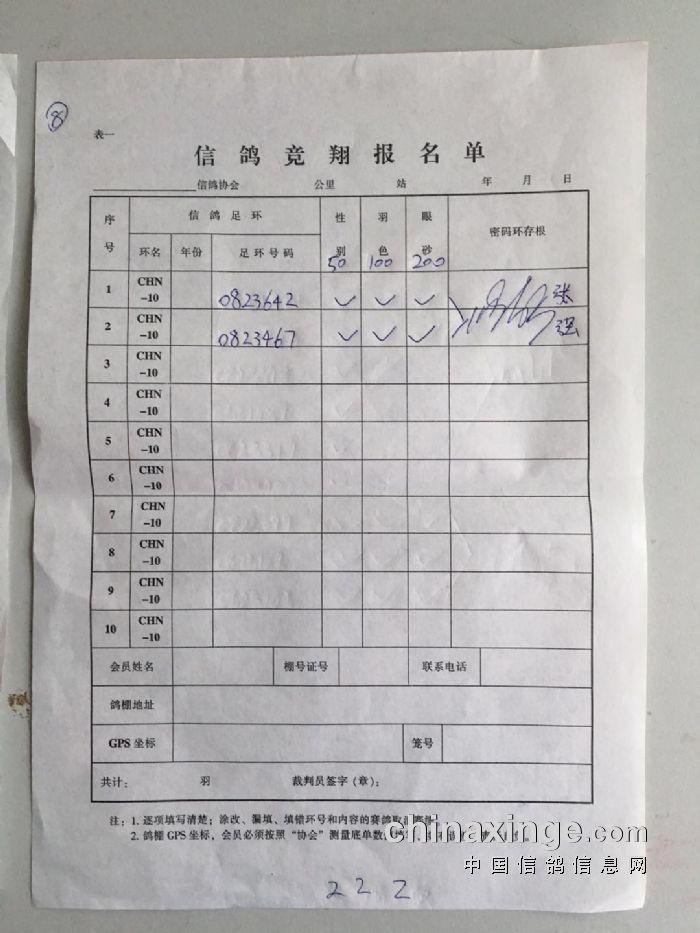 ⑧
表一
信鸽竞翔报名单
信鸽协会 公里 站 年 月 日
序号 信鸽足环 性别 羽色 眼砂 密码环存根
环名 年份 足环号码 50 100 200
1 CHN-10 0823642 ✓ ✓ ✓ 张
2 CHN-10 0823467 ✓ ✓ ✓ 强
3 CHN-10
4 CHN-10
5 CHN-10
6 CHN-10
7 CHN-10
8 CHN-10
9 CHN-10
10 CHN-10
会员姓名 棚号证号 联系电话
鸽棚地址
GPS 坐标 笼号
共计： 羽 裁判员签字（章）：
注：1. 逐项填写清楚；涂改、漏填、填错环号和内容的赛鸽取消
2. 鸽棚 GPS 坐标，会员必须按照“协会”测量底单数
chinaxinge.com
中国信鸽信息网
2 2 2